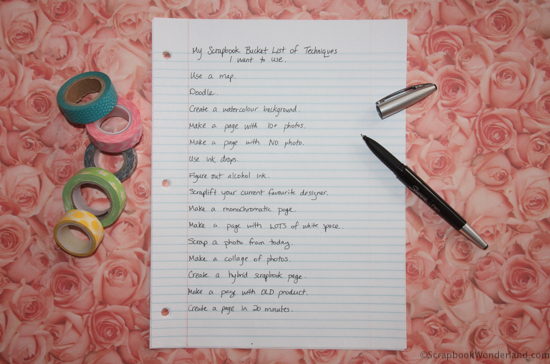 My Scrapbook Bucket List of Techniques
I want to use.
Use a map.
Doodle.
Create a watercolour background.
Make a page with 10+ photos.
Make a page with NO photo.
Use ink drops.
Figure out alcohol ink.
Scraplift your current favourite designer.
Make a monochromatic page.
Make a page with LOTS of white space.
Scrap a photo from today.
Make a collage of photos.
Create a hybrid scrapbook page.
Make a page with OLD product.
Create a page in 20 minutes.
©ScrapbookWonderland.com